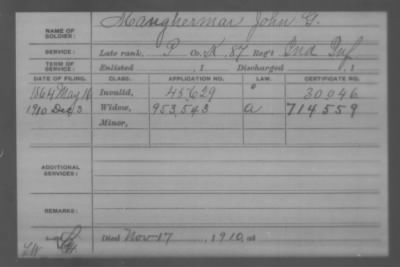 NAME OF SOLDIER: Maugherman John G.
SERVICE: Late rank, P Co. K, 87 Reg't Ind Inf.
TERM OF SERVICE: Enlisted , 1 Discharged , 1
DATE OF FILING. CLASS. APPLICATION NO. LAW. CERTIFICATE NO.
1864 May 16 Invalid, 45629 30046
1910 Dec 3 Widow, 953,543 a 714559
Minor,
ADDITIONAL SERVICES:
REMARKS:
Died Nov 17 , 1910, at